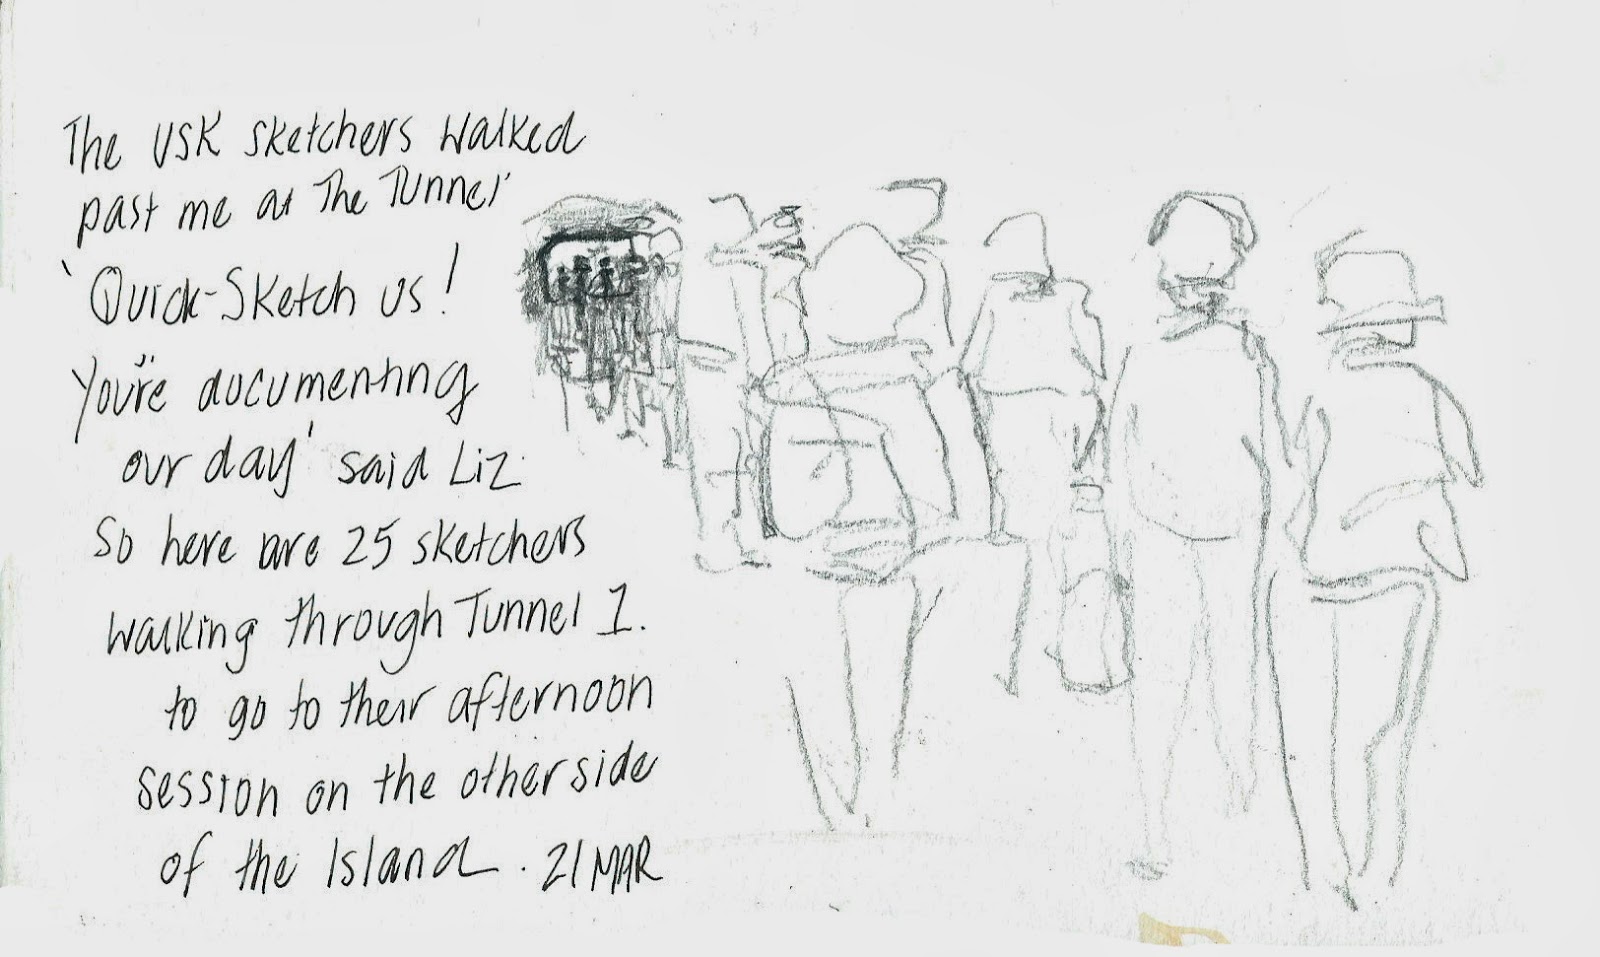 The USK sketchers walked
past me at The Tunnel'
'Quick-Sketch us!
You're documenting
our day' said Liz.
So here are 25 sketchers
walking through Tunnel 1.
to go to their afternoon
session on the other side
of the Island. 21 MAR